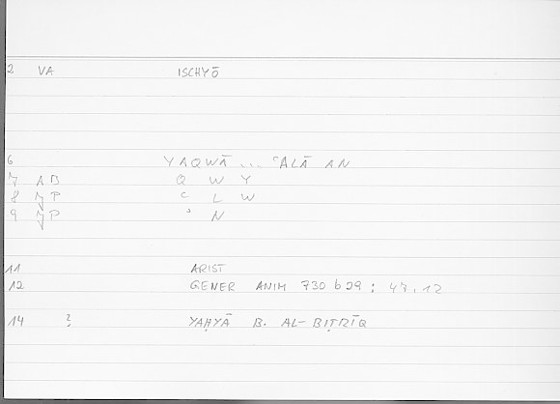 2 VA ISCHYŌ
6 YAQWĀ ... ʿALĀ AN
7 AB Q W Y
8 JP ʿ L W
9 JP ʾ N
11 ARIST
12 GENER ANIM 730 b 29 : 47, 12
14 ? YAḤYĀ B. AL-BIṬRĪQ